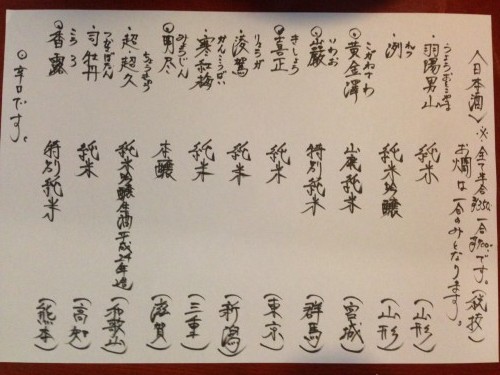 〈日本酒〉※全て半合¥350、一合¥700です。(税抜)
お燗は一合のみとなります。
・羽陽男山 純米 (山形)
・洌 れつ 純米吟醸 (山形)
◎黄金澤 こがねさわ 山廃純米 (宮城)
◎巖 いわお 特別純米 (群馬)
◎喜正 きしょう 純米 (東京)
・凌駕 りょうが 純米 (新潟)
・寒紅梅 かんこうばい 純米 (三重)
◎男尽 本醸 (滋賀)
・超・超久 純米吟醸生酒平成24年造 (和歌山)
・司牡丹 つかさぼたん 純米 (高知)
◎香露 こうろ 特別純米 (熊本)
◎辛口です。